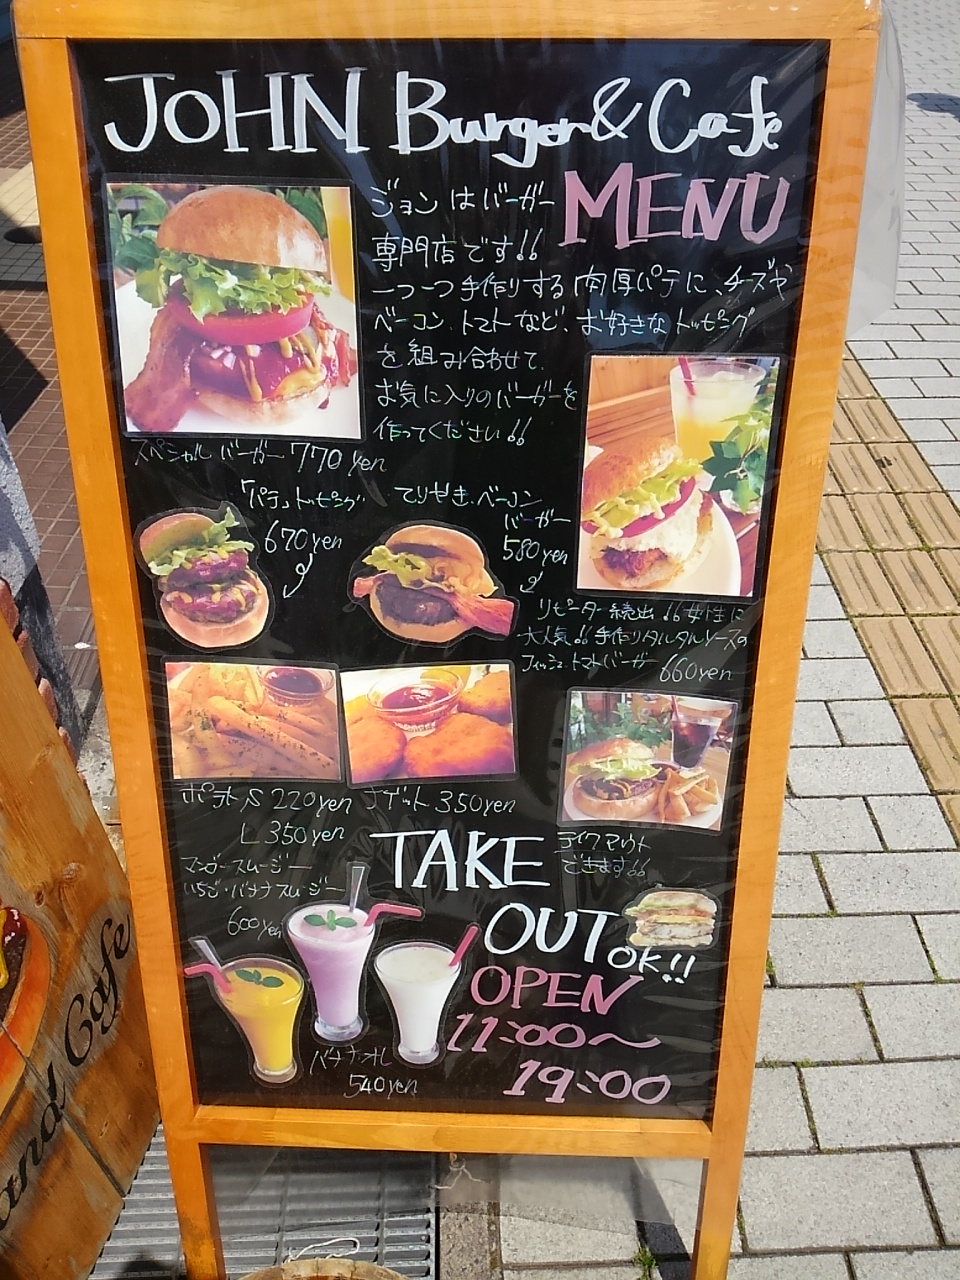 JOHN Burger & Cafe
MENU
ジョンはバーガー
専門店です!!
一つ一つ手作りする肉厚パテに、チーズや
ベーコン、トマトなど、お好きなトッピング
を組み合わせて、
お気に入りのバーガーを
作ってください!!
スペシャルバーガー 770yen
パテトッピング
670yen
てりやき・ベーコン
バーガー
580yen
リピーター続出!!女性に
大人気!!手作りタルタルソースの
フィッシュトマトバーガー 660yen
ポテト S 220yen
L 350yen
ナゲット 350yen
テイクアウト
できます!!
マンゴースムージー
いちご・バナナスムージー
600yen
TAKE
OUT OK!!
OPEN
11:00〜
19:00
バナナオレ
540yen
and Cafe